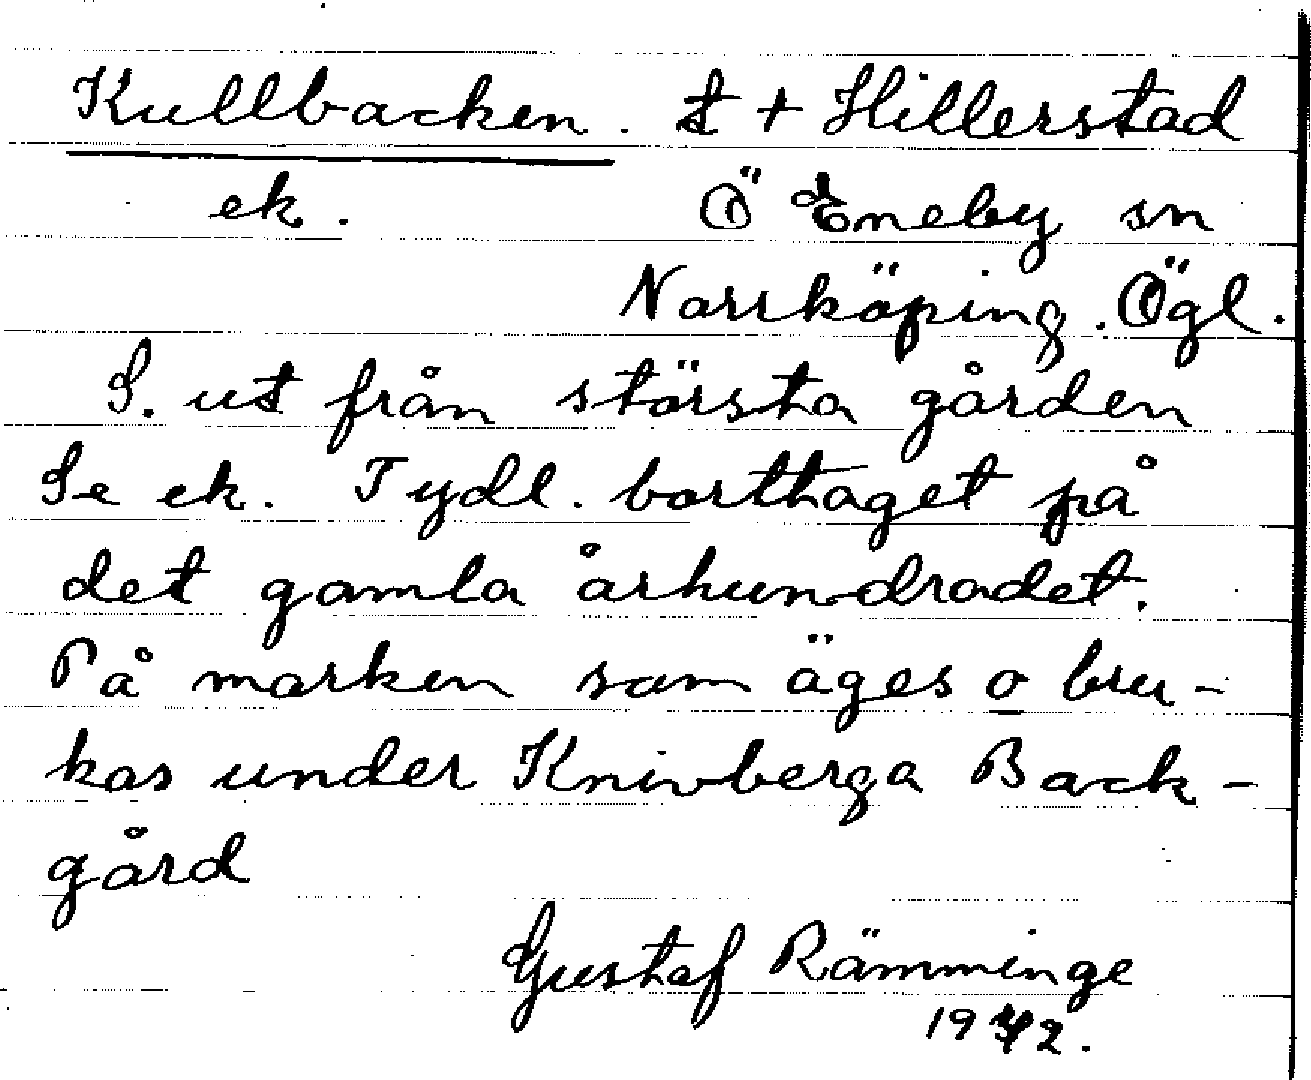 Kullbacken. t + Hillerstad
ek. Ö Eneby sn
Norrköping. Ögl.
S. ut från största gården
Se ek. Tydl. borttaget på
det gamla århundradet.
På marken som äges o bru-
kas under Knivberga Back-
gård
Gustaf Rämminge
1942.